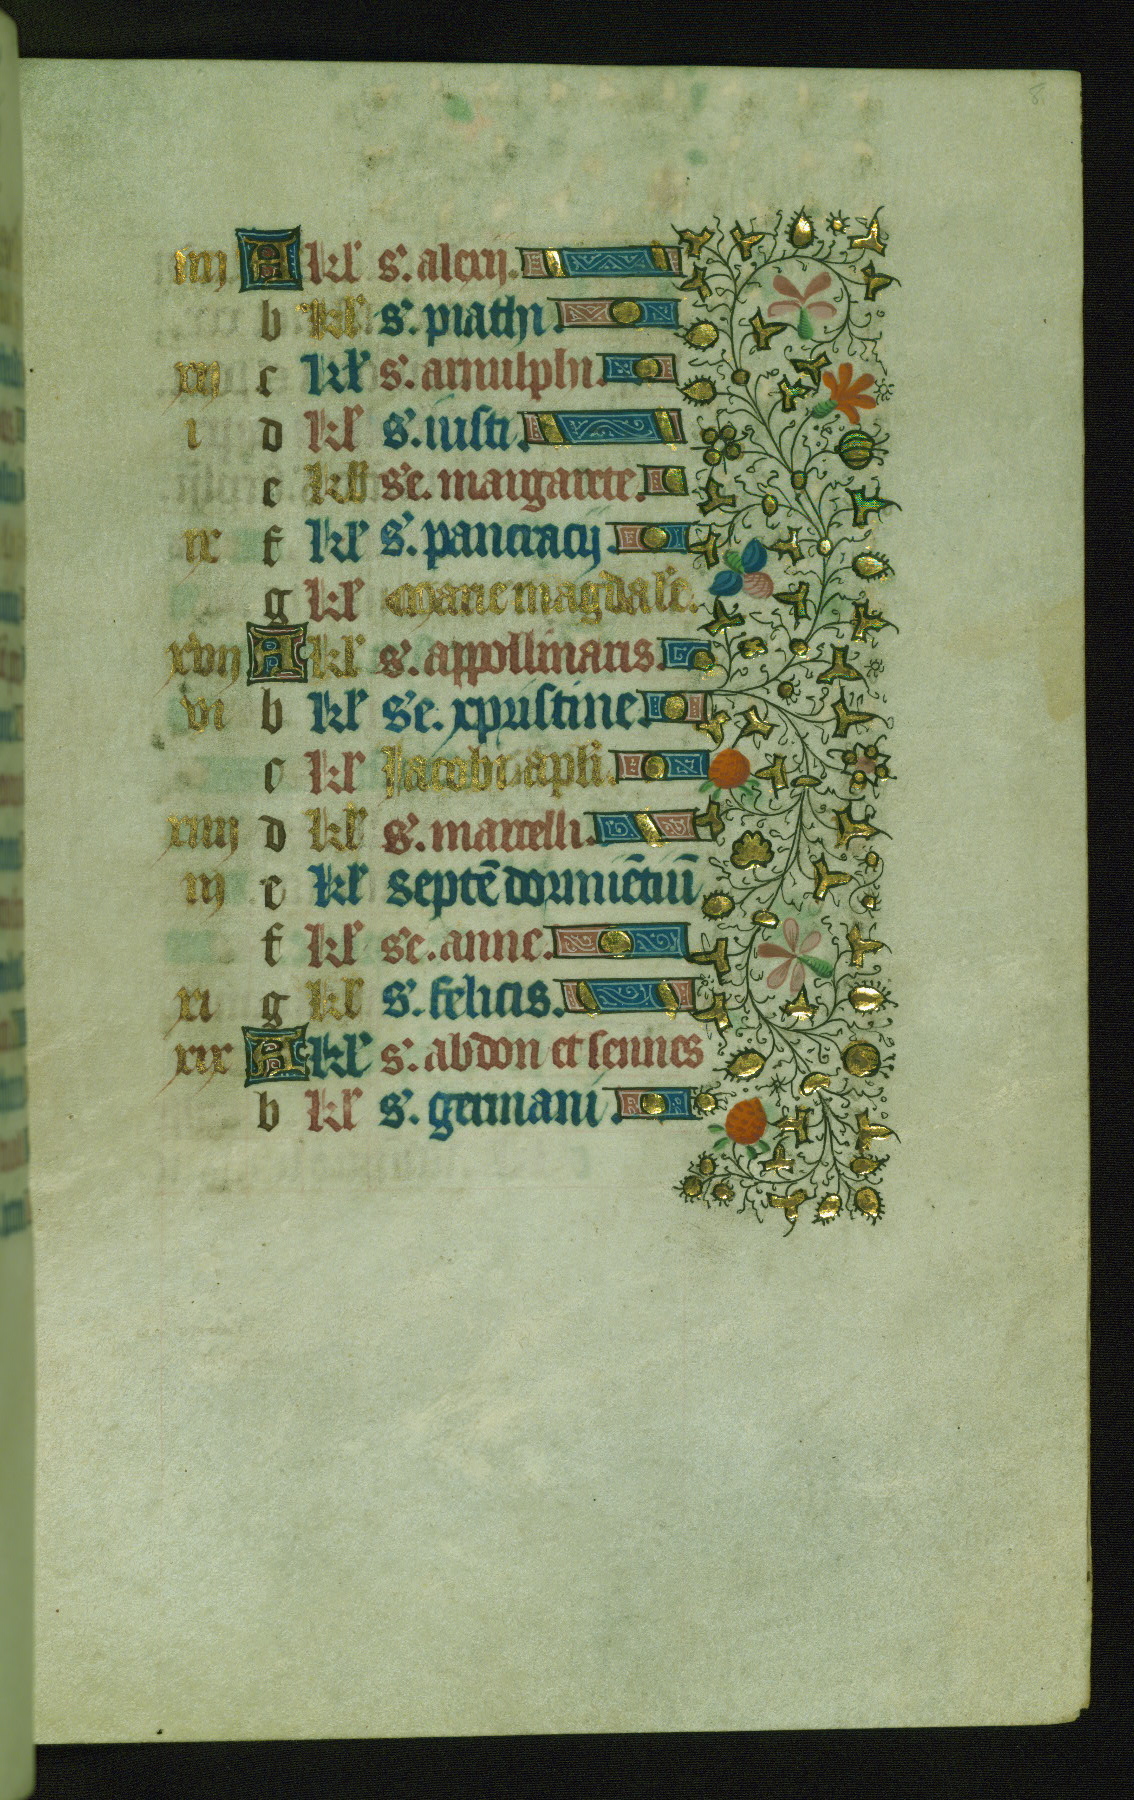 iiij A kl' s'. alexij.
b kl' s'. piathi.
xij c kl' s'. arnulphi.
i d kl' s'. iusti.
e kl' s'e. margarete.
ix f kl' s'. pancracij
g kl' Marie magdal'e.
xvij A kl' s'. appollinaris.
vi b kl' s'e. xpristine.
c kl' Jacobi apl'i.
xiiij d kl' s'. marcelli.
iij e kl' septē dormiētiū
f kl' s'e. anne.
xi g kl' s'. felicis.
xix A kl' s'. abdon et sennes
b kl' s'. germani.